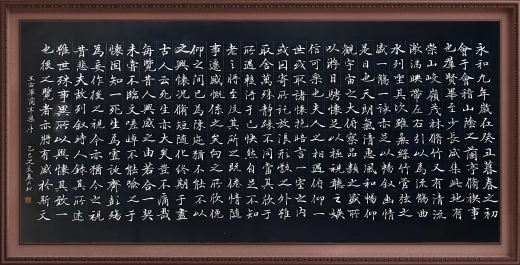 永和九年歲在癸丑暮春之初
會于會稽山陰之蘭亭脩禊事
也羣賢畢至少長咸集此地有
崇山峻嶺茂林脩竹又有清流
激湍映帶左右引以為流觴曲
水列坐其次雖無絲竹管弦之
盛一觴一詠亦足以暢叙幽情
是日也天朗氣清惠風和暢仰
觀宇宙之大俯察品類之盛所
以遊目騁懷足以極視聽之娛
信可樂也夫人之相與俯仰一
世或取諸懷抱悟言一室之内
或因寄所託放浪形骸之外雖
取舍萬殊靜躁不同當其欣於
所遇暫得於己快然自足不知
老之將至及其所之既倦情隨
事遷感慨係之矣向之所欣俛
仰之間已為陳迹猶不能不以
之興懷況脩短隨化終期於盡
古人云死生亦大矣豈不痛哉
每覽昔人興感之由若合一契
未嘗不臨文嗟悼不能喻之于
懷固知一死生為虛誕齊彭殤
為妄作後之視今亦猶今之視
昔悲夫故列叙時人錄其所述
雖世殊事異所以興懷其致一
也後之覽者亦將有感於斯文
王右軍蘭亭集序